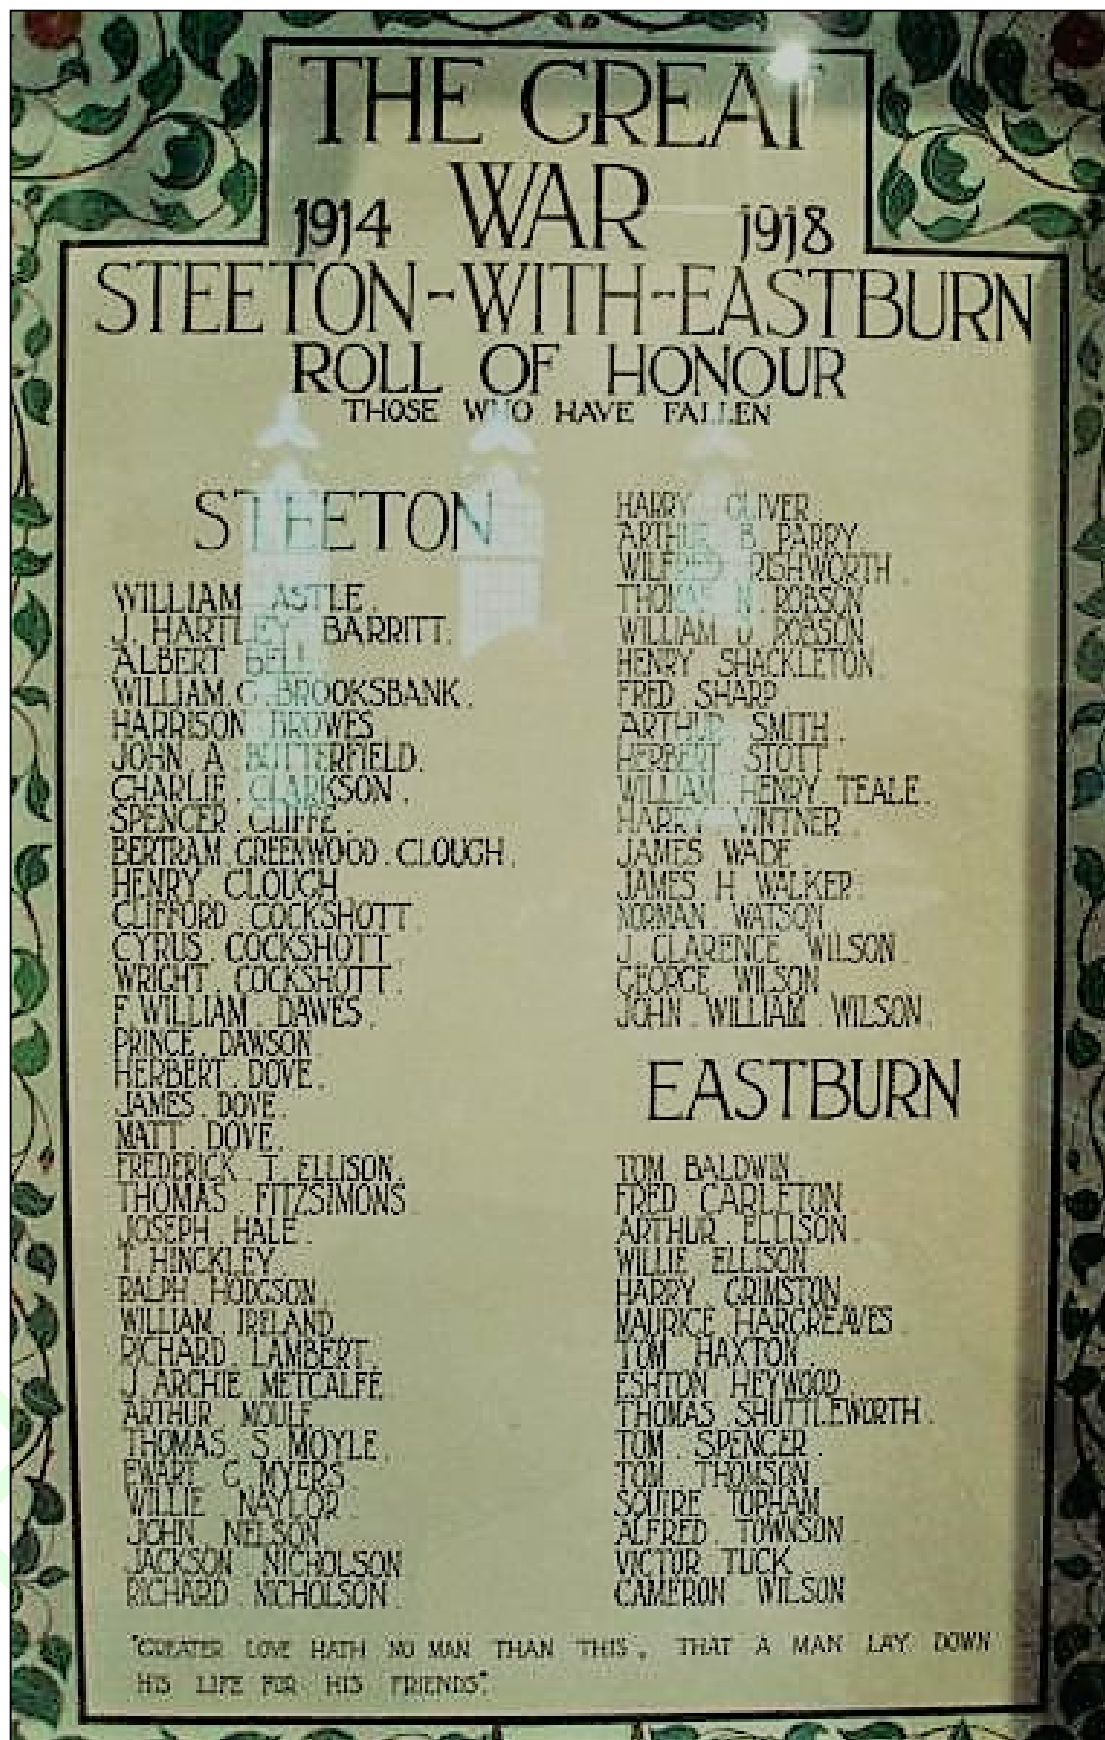 THE GREAT
WAR
1914 1918
STEETON-WITH-EASTBURN
ROLL OF HONOUR
THOSE WHO HAVE FALLEN
STEETON
WILLIAM ASTLE.
J. HARTLEY. BARRITT.
ALBERT BELL.
WILLIAM.G.BROOKSBANK.
HARRISON BROWES
JOHN A BUTTERFIELD.
CHARLIE CLARKSON.
SPENCER CLIFFE.
BERTRAM.GREENWOOD.CLOUGH.
HENRY CLOUGH
CLIFFORD COCKSHOTT.
CYRUS. COCKSHOTT.
WRIGHT. COCKSHOTT.
F.WILLIAM. DAWES.
PRINCE. DAWSON.
HERBERT. DOVE.
JAMES. DOVE.
MATT DOVE.
FREDERICK T. ELLISON.
THOMAS FITZSIMONS.
JOSEPH HALE.
T. HINCKLEY.
RALPH HODGSON.
WILLIAM IRELAND.
RICHARD LAMBERT.
J. ARCHIE METCALFE.
ARTHUR MOULE
THOMAS S MOYLE.
EWART G MYERS.
WILLIE NAYLOR.
JOHN NELSON
JACKSON NICHOLSON
RICHARD NICHOLSON.
HARRY OLIVER
ARTHUR B. PARRY.
WILFRED RISHWORTH.
THOMAS N. ROBSON
WILLIAM D. ROBSON
HENRY SHACKLETON.
FRED SHARP
ARTHUR SMITH.
HERBERT STOTT.
WILLIAM HENRY TEALE.
HARRY VINTNER.
JAMES WADE.
JAMES H WALKER.
NORMAN WATSON
J. CLARENCE WILSON.
GEORGE WILSON
JOHN. WILLIAM. WILSON.
EASTBURN
TOM BALDWIN.
FRED CARLETON.
ARTHUR ELLISON.
WILLIE ELLISON.
HARRY GRIMSTON.
MAURICE HARGREAVES.
TOM HAXTON.
ESHTON HEYWOOD.
THOMAS SHUTTLEWORTH.
TOM SPENCER.
TOM THOMSON.
SQUIRE TOPHAM
ALFRED TOWNSON.
VICTOR TUCK.
CAMERON WILSON
"GREATER LOVE HATH NO MAN THAN THIS, THAT A MAN LAY DOWN
HIS LIFE FOR HIS FRIENDS".